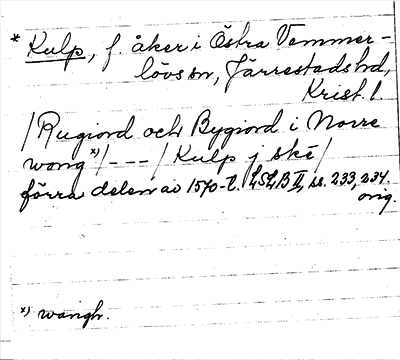 * Kulp, f. åker i Östra Vemmer-
lövs sn, Järrestads hd,
Krist. l.
/Rugiord och Bygiord i Norre
wong x)/---/ Kulp j ske/
förra delen av 1570-t. LSLB II, ss. 233, 234
orig.
x) wangh.